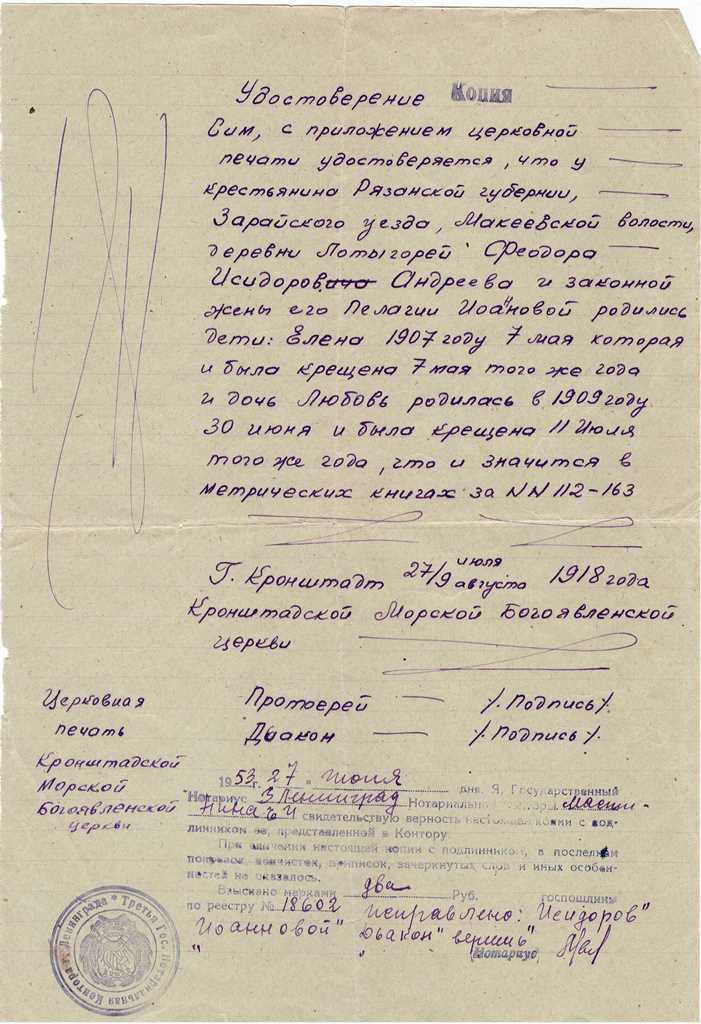 Удостоверение Копия
Сим, с приложением церковной
печати удостоверяется, что у
крестьянина Рязанской губернии,
Зарайского уезда, Макеевской волости,
деревни Лотыгорей Феодора
Исидорович̶а̶ Андреева и законной
жены его Пелагии Иоановой родились
дети: Елена 1907 году 7 мая которая
и была крещена 7 мая того же года
и дочь Любовь родилась в 1909 году
30 июня и была крещена 11 Июля
того же года, что и значится в
метрических книгах за NN 112-163
Г. Кронштадт 27/9 июля августа 1918 года
Кронштадской Морской Богоявленской
церкви
Церковная
печать
Кронштадской
Морской
Богоявленской
церкви
Протоерей — /. Подпись /.
Диакон — /. Подпись /.
1953 г. 27 июля дня. Я, Государственный
Нотариус 3 Ленинград Нотариальной конторы
свидетельствую верность настоящей копии с под-
линником ее, представленной в Контору.
При сличении настоящей копии с подлинником, в последнем
поправок, подчисток, приписок, зачеркнутых слов и иных особен-
ностей не оказалось.
Взыскано марками два Руб. госпошлины
по реестру № 18602 Исправлено: Исидоров"
Иоанновой" Дьякон" верить"
Нотариус
Третья Гос. Нотариальная Контора г. Ленинграда